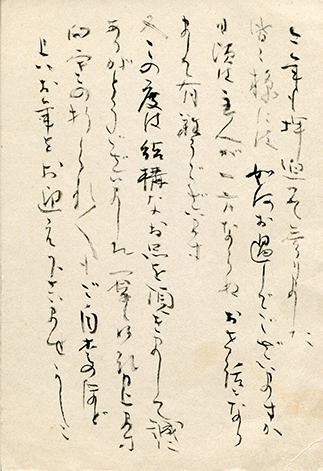 今年も押迫って参りました
皆々様には如何お過しでございますか
日頃は主人が一方ならぬお世話になり
まして有難うございます
又この度は結構なお品を頂きまして誠に
ありがとうございました 一筆御礼申上ます
向寒の折くれ〴〵もご自愛のほど
よいお年をお迎え下さいませ かしこ